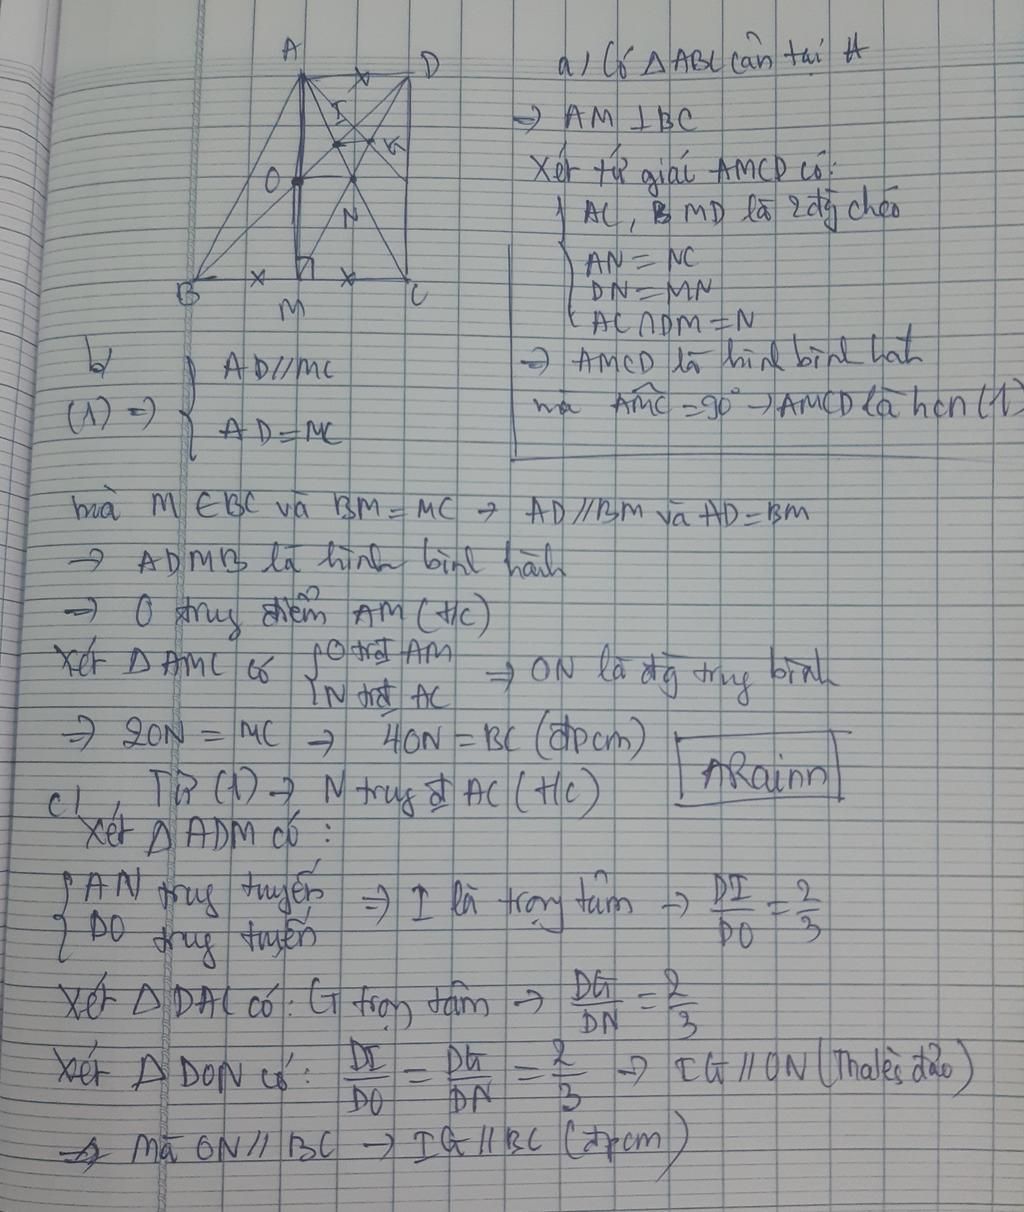 A D
I
G
O
N
B M C
a) Có ΔABC cân tại A
→ AM ⊥ BC
Xét tứ giác AMCD có:
{ AC, MD là 2 đg chéo
AN = NC
DN = MN
AC ∩ DM = N
→ AMCD là hình bình hah
mà AMC = 90° → AMCD là hcn (1)
b/
(1) ⇒ { AD // MC
AD = MC
mà M ∈ BC và BM = MC → AD // BM và AD = BM
→ ADMB là hình bình hành
→ O trug điểm AM (t/c)
Xét ΔAMC có { O trđ AM
N trđ AC
⇒ ON là đg trug bình
⇒ 2ON = MC → 4ON = BC (đpcm)
ARainn
c/, Từ (1) → N trug đ AC (t/c)
Xét ΔADM có:
{ AN trug tuyến
DO trug tuyến
⇒ I là trọng tâm → DI/DO = 2/3
Xét ΔDAC có: G trọn tâm → DG/DN = 2/3
Xét ΔDON có: DI/DO = DG/DN = 2/3 → IG // ON (Thalès đảo)
Mà ON // BC → IG // BC (đpcm)